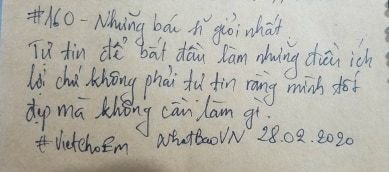 #160 - Những bác sĩ giỏi nhất.
Tự tin để bắt đầu làm những điều ích
lợi chứ không phải tự tin rằng mình tốt
đẹp mà không cần làm gì.
#VietChoEm NhatBaoVN 28.02.2020